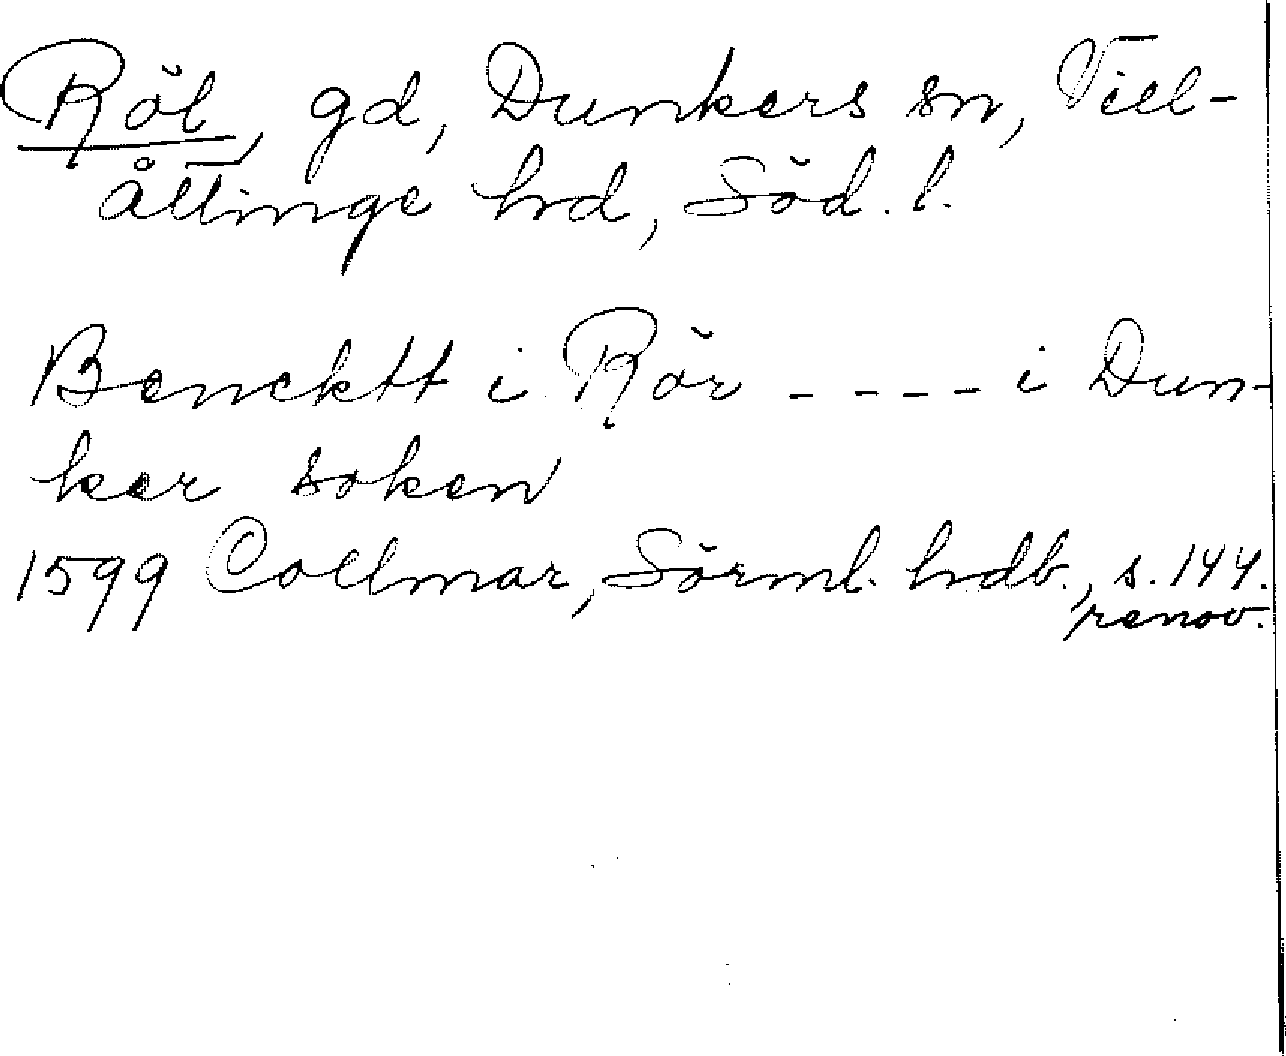 Röl, gd, Dunkers sn, Vill-
åttinge hd, Söd. l.
Bencktt i Rör ---- i Dun-
ker soken
1599 Collmar, Sörml. hdb., s. 144.
renov.